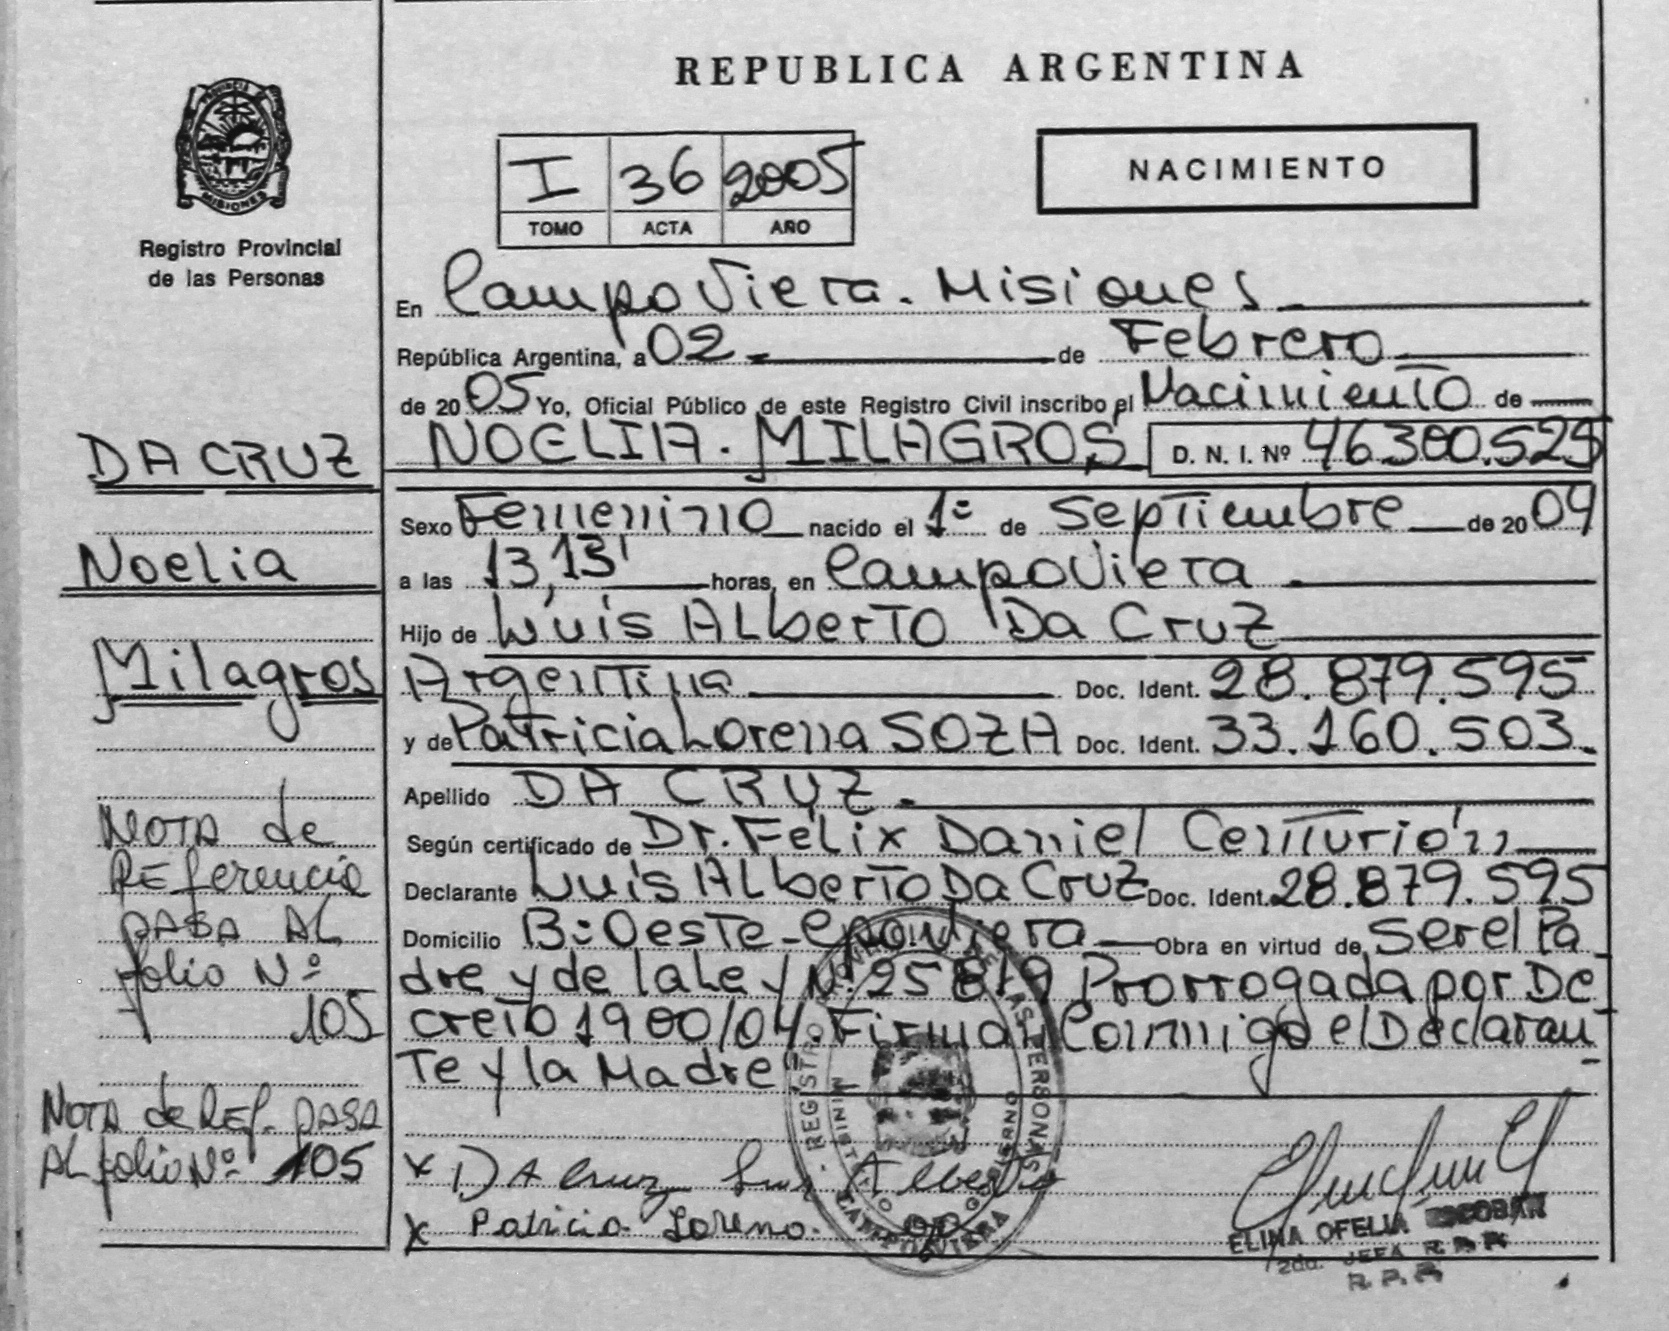 REPUBLICA ARGENTINA
PROVINCIA DE
MISIONES
Registro Provincial
de las Personas
I 36 2005
TOMO ACTA AÑO
NACIMIENTO
En Campo Viera. Misiones
República Argentina, a 02 de Febrero
de 2005 Yo, Oficial Público de este Registro Civil inscribo el Nacimiento de
NOELIA. MILAGROS D. N. I. Nº 46.300.525
Sexo Femenino nacido el 1º de Septiembre de 2004
a las 13,13' horas, en Campo Viera
Hijo de Luis ALberTO Da Cruz
Argentina Doc. Ident. 28.879.595
y de Patricia Lorena SOZA Doc. Ident. 33.160.503.
Apellido DA CRUZ.
Según certificado de Dr. Félix Daniel Centurión
Declarante Luis ALberTO Da Cruz Doc. Ident. 28.879.595
Domicilio Bº Oeste - Cpo Viera Obra en virtud de Ser el Pa
dre y de la Ley Nº 25819 Prorrogada por De
creto 1900/04. Firman Conmigo el Declaran
te y la Madre
DA CRUZ
Noelia
Milagros
NOTA de
REferencia
PASA AL
folio Nº
105
NOTA de REf. PASA
AL folio Nº 105
x DA Cruz Luis Alberto
x Patricia Lorena
REGISTRO PROVINCIAL DE LAS PERSONAS
MINISTERIO DE GOBIERNO
CAMPO VIERA
ELINA OFELIA ESCOBAR
2da. JEFA R.P.P.
R.P.P.